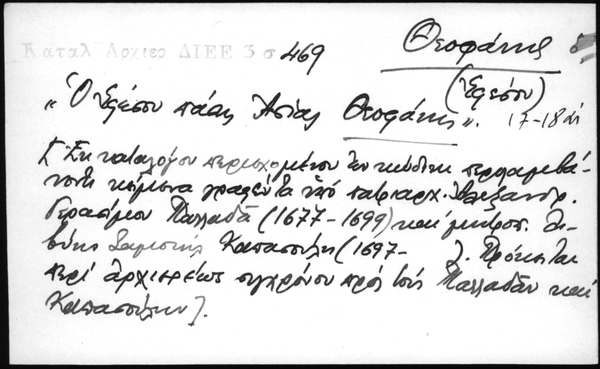 Καταλ Αρχιερ ΔΙΕΕ 3 σ 469
Θεοφάνης
(Ἐφέσου)
« Ὁ Ἐφέσου πάσης Ἀσίας Θεοφάνης ». 17-18 αἰ
[ Ἐκ καταλόγου περιεχομένου ἐν κώδικι περιλαμβά-
νοντι κείμενα γραφέντα ὑπό πατριάρχ. Ἀλεξανδρ.
Γερασίμου Παλλαδᾶ (1677-1699) καί μητροπ. Λι-
βύης Σαμουήλ Καπασούλη (1697- ). Πρόκειται
περί ἀρχιερέως συγχρόνου πρός τούς Παλλαδᾶν καί
Καπασούλην ].